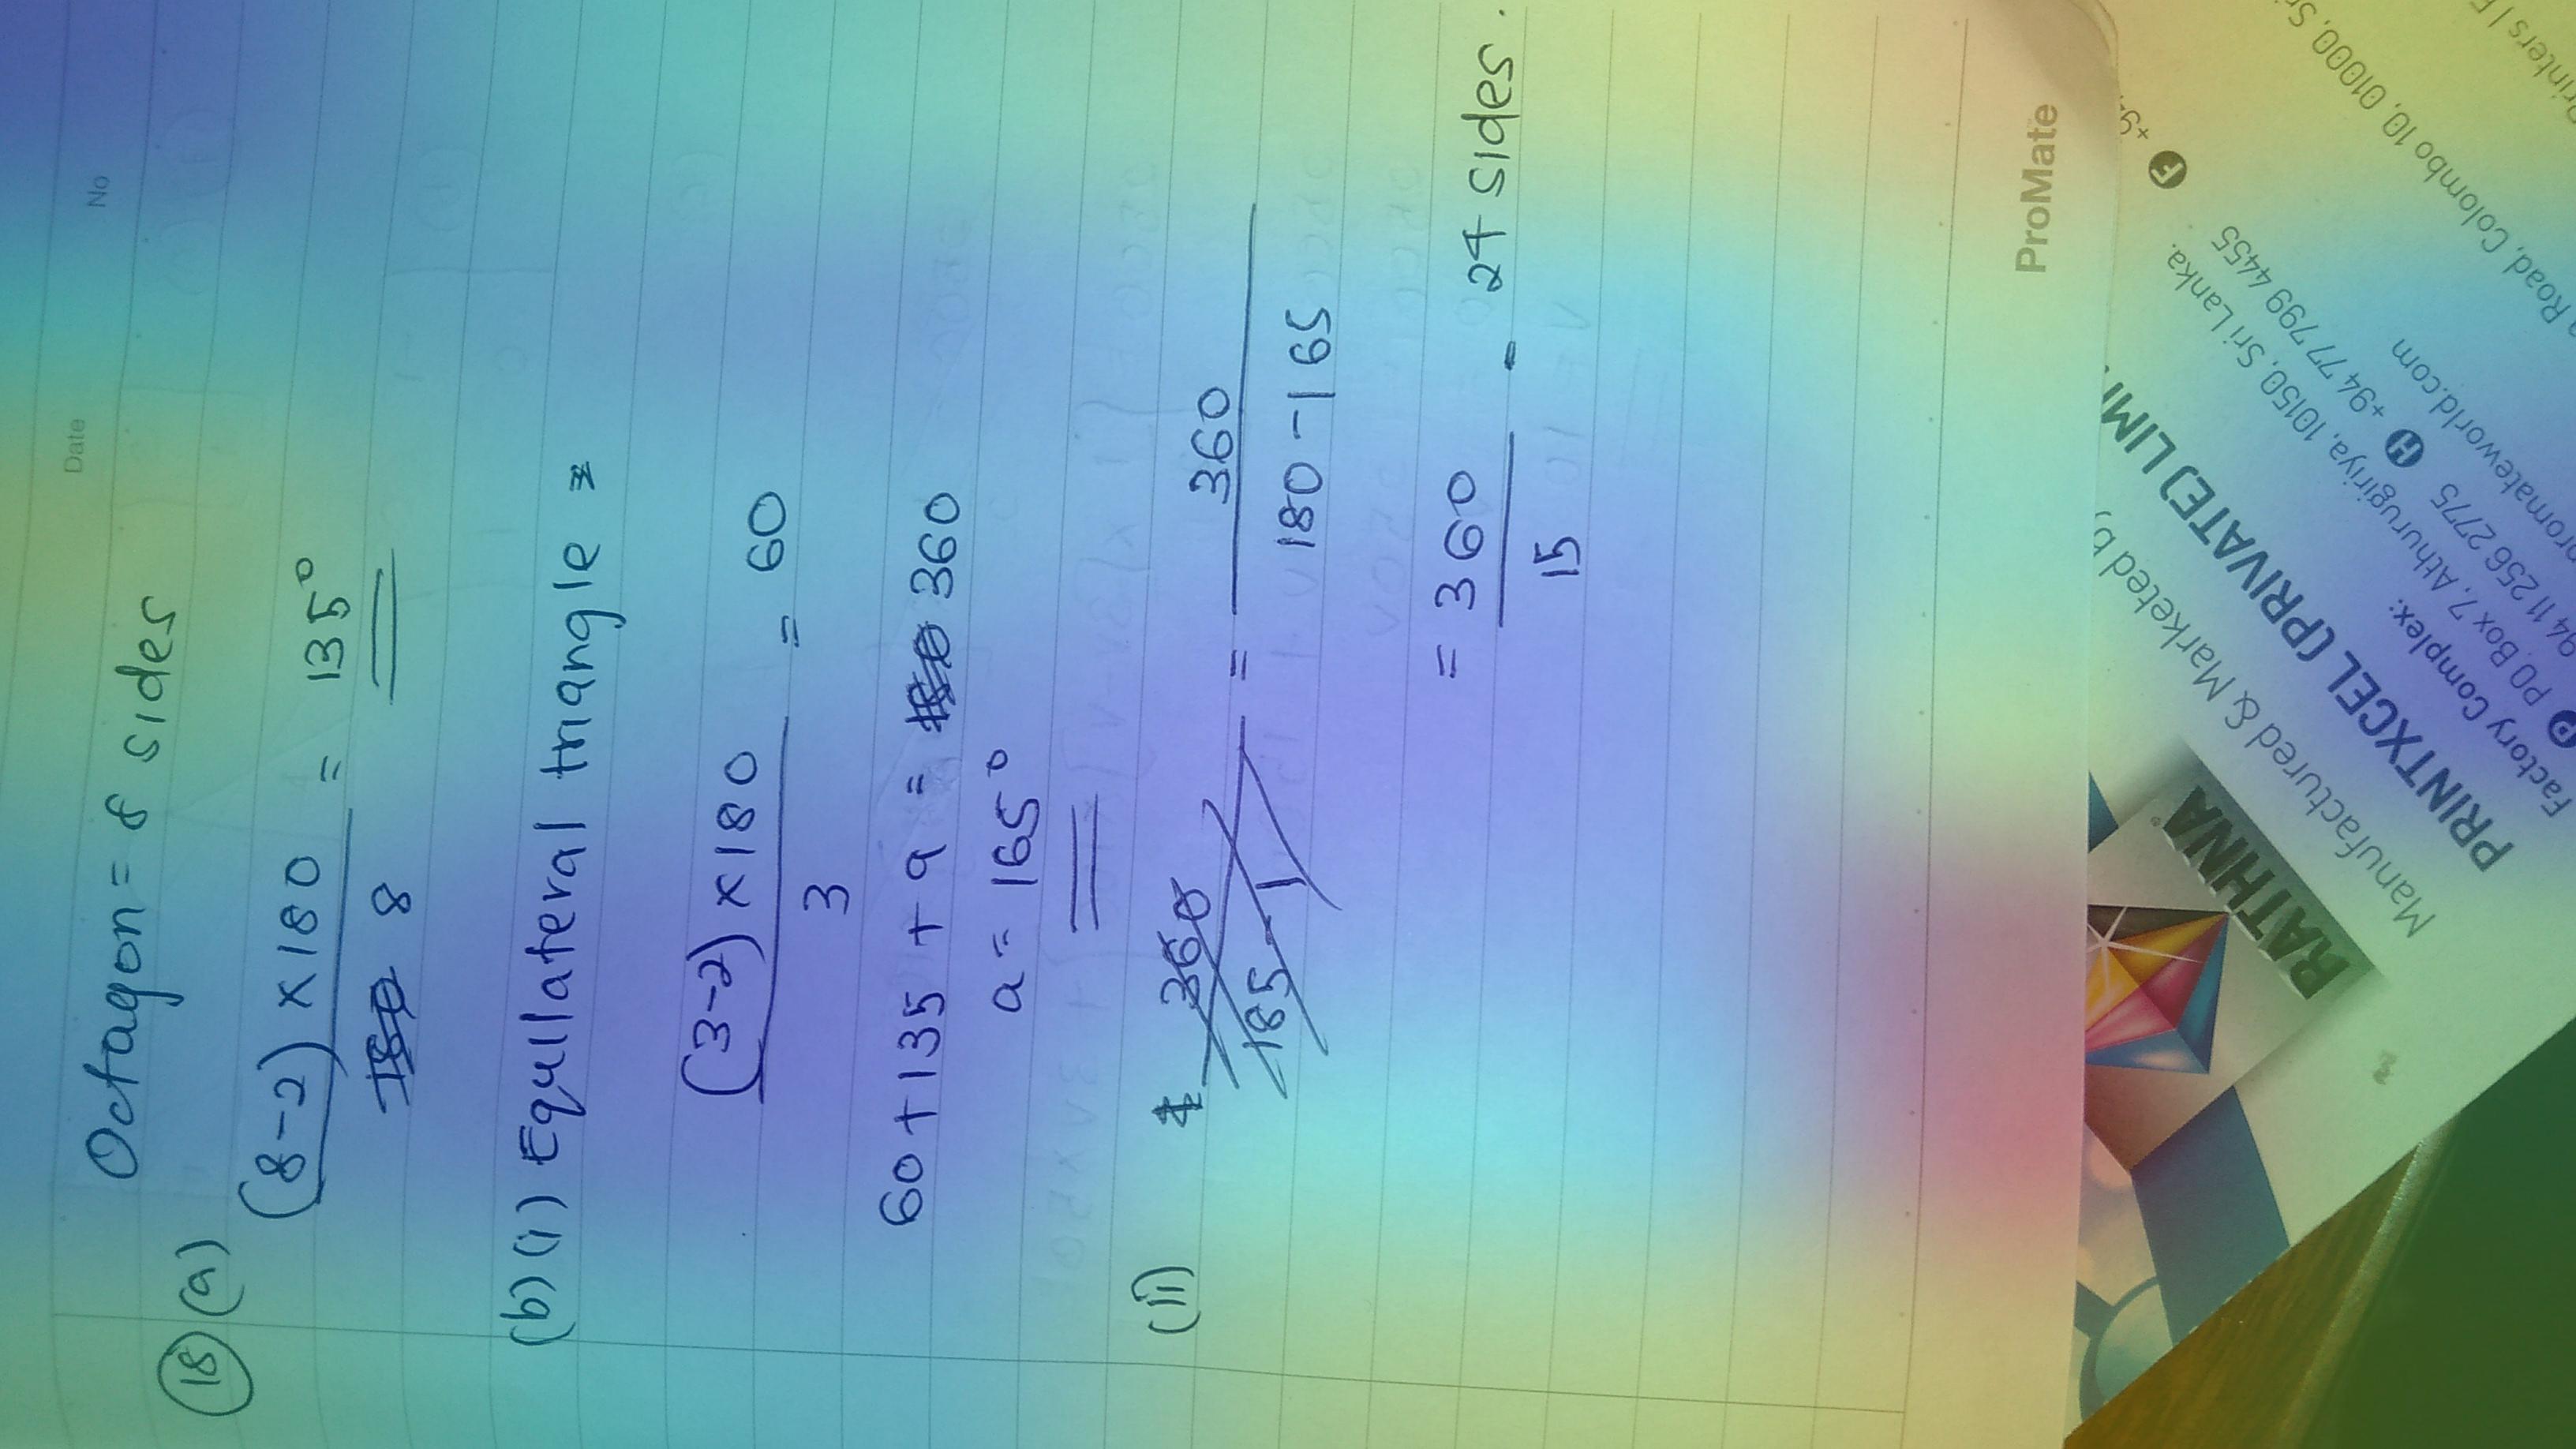 Date No
(18) (a) Octagon = 8 sides
(8-2) x 180 / 8 = 135°
(b) (i) Equllateral triangle =
(3-2) x 180 / 3 = 60
60 + 135 + a = 360
a = 165°
(ii) 360 / 185 - 1 = 360 / 180 - 165
= 360 / 15 = 24 sides.
ProMate
RATHNA
Manufactured & Marketed by
PRINTXCEL (PRIVATE) LIMI
Factory Complex:
P PO. Box 7, Athurugiriya, 10150, Sri Lanka.
94 11 256 2775 H +94 77 799 4455 F
promateworld.com
Road, Colombo 10, 01000, Sri